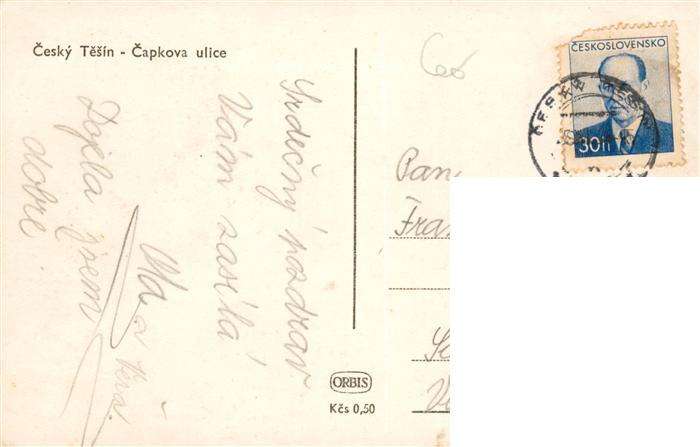 Český Těšín - Čapkova ulice
Srdečný pozdrav
Vám zasílá
Vlá a Věra.
Dojela jsem
dobře.
ČESKOSLOVENSKO
30 h
ČESKÝ TĚŠÍN
Pan
Fran
ORBIS
Kčs 0,50